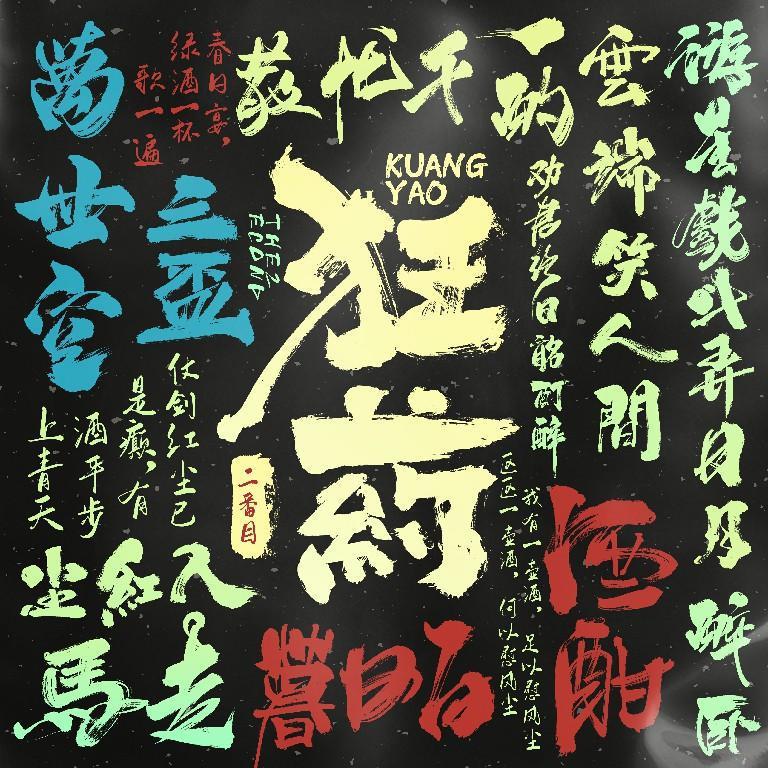 狂药
KUANG
YAO
THE2
ECOND
二番目
春日宴，
绿酒一杯
歌一遍
一酌
千
忧
散
雲端笑人間
戏弄日月
醉卧
劝君终日酩酊醉
三盃
萬世空
仗剑红尘已
是癫，有
酒平步
上青天
走入
紅尘
馬
酒酣
白日暮
我有一壶酒，足以慰风尘
区区一壶酒，何以慰风尘